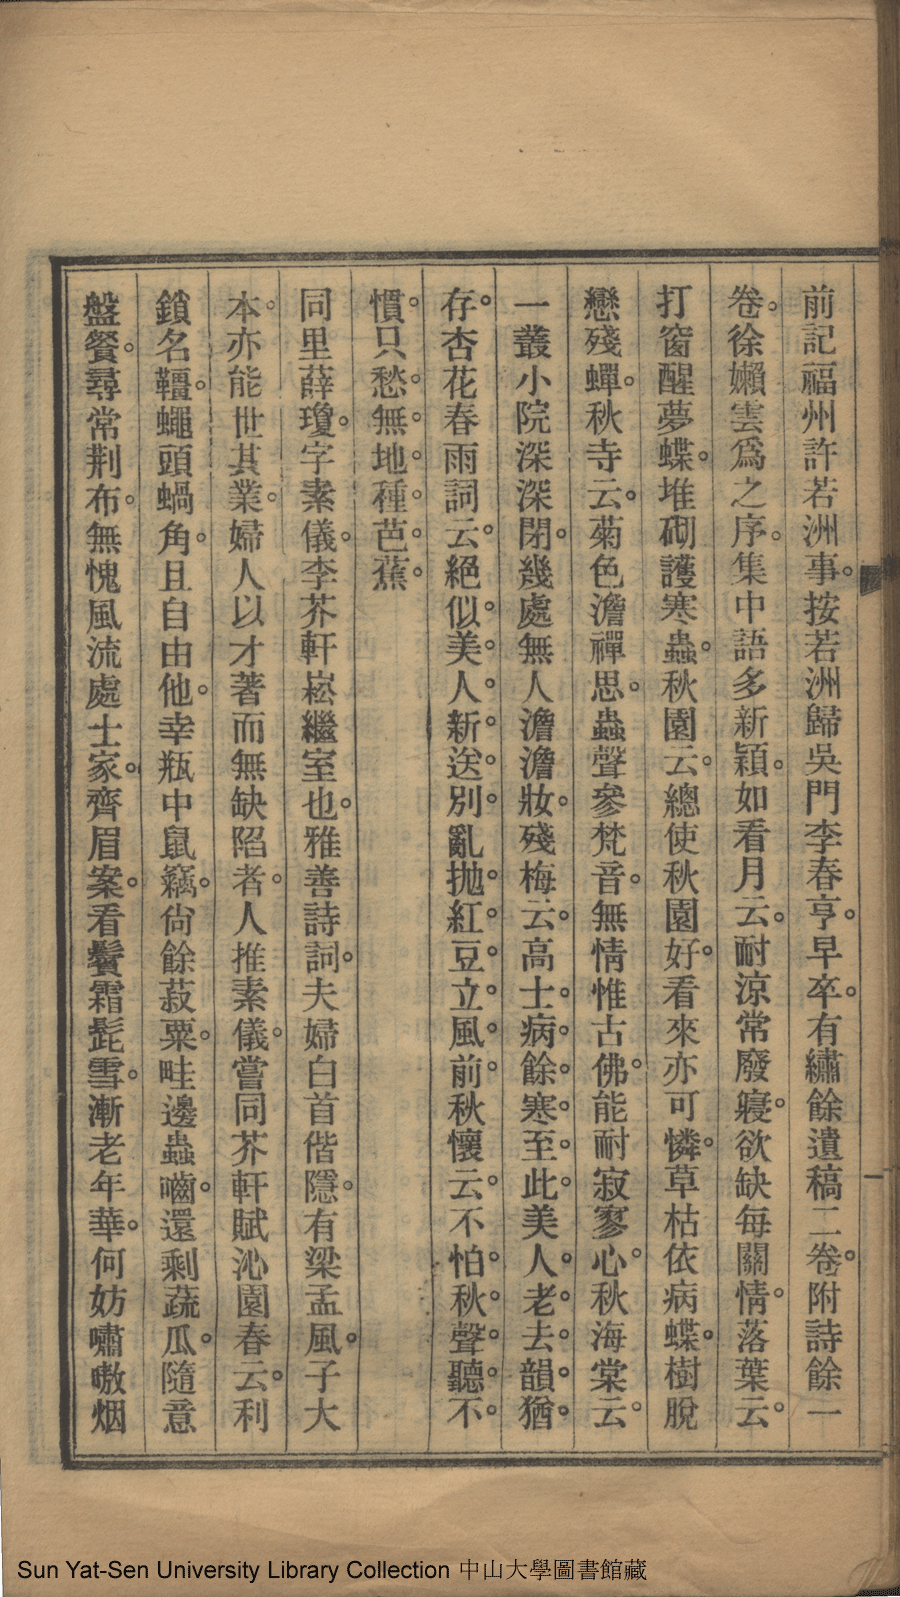 前記福州許若洲事。按若洲歸吳門李春亨。早卒。有繡餘遺稿二卷。附詩餘一
卷。徐嬾雲爲之序。集中語多新穎。如看月云。耐涼常廢寢。欲缺每關情。落葉云。
打窗醒夢蝶。堆砌護寒蟲。秋園云。總使秋園好。看來亦可憐。草枯依病蝶。樹脫
戀殘蟬。秋寺云。菊色澹禪思。蟲聲參梵音。無情惟古佛。能耐寂寥心。秋海棠云。
一叢小院深深閉。幾處無人澹澹妝。殘梅云。高士。病。餘。寒。至。此。美人。老。去。韻。猶。
存。杏花春雨詞云。絕似。美。人。新。送。別。亂拋。紅。豆。立。風。前。秋懷云。不怕。秋。聲。聽。不。
慣。只愁。無。地。種。芭。蕉。
同里薛瓊。字素儀。李芥軒崧繼室也。雅善詩詞。夫婦白首偕隱。有梁孟風。子大
本。亦能世其業。婦人以才著而無缺陷者。人推素儀。嘗同芥軒賦沁園春云。利
鎖名韁。蠅頭蝸角。且自由他。幸瓶中鼠竊。尙餘菽粟。畦邊蟲嚙。還剩蔬瓜。隨意
盤餐。尋常荆布。無愧風流處士家。齊眉案。看鬢霜髭雪。漸老年華。何妨嘯嗷烟
Sun Yat-Sen University Library Collection 中山大學圖書館藏